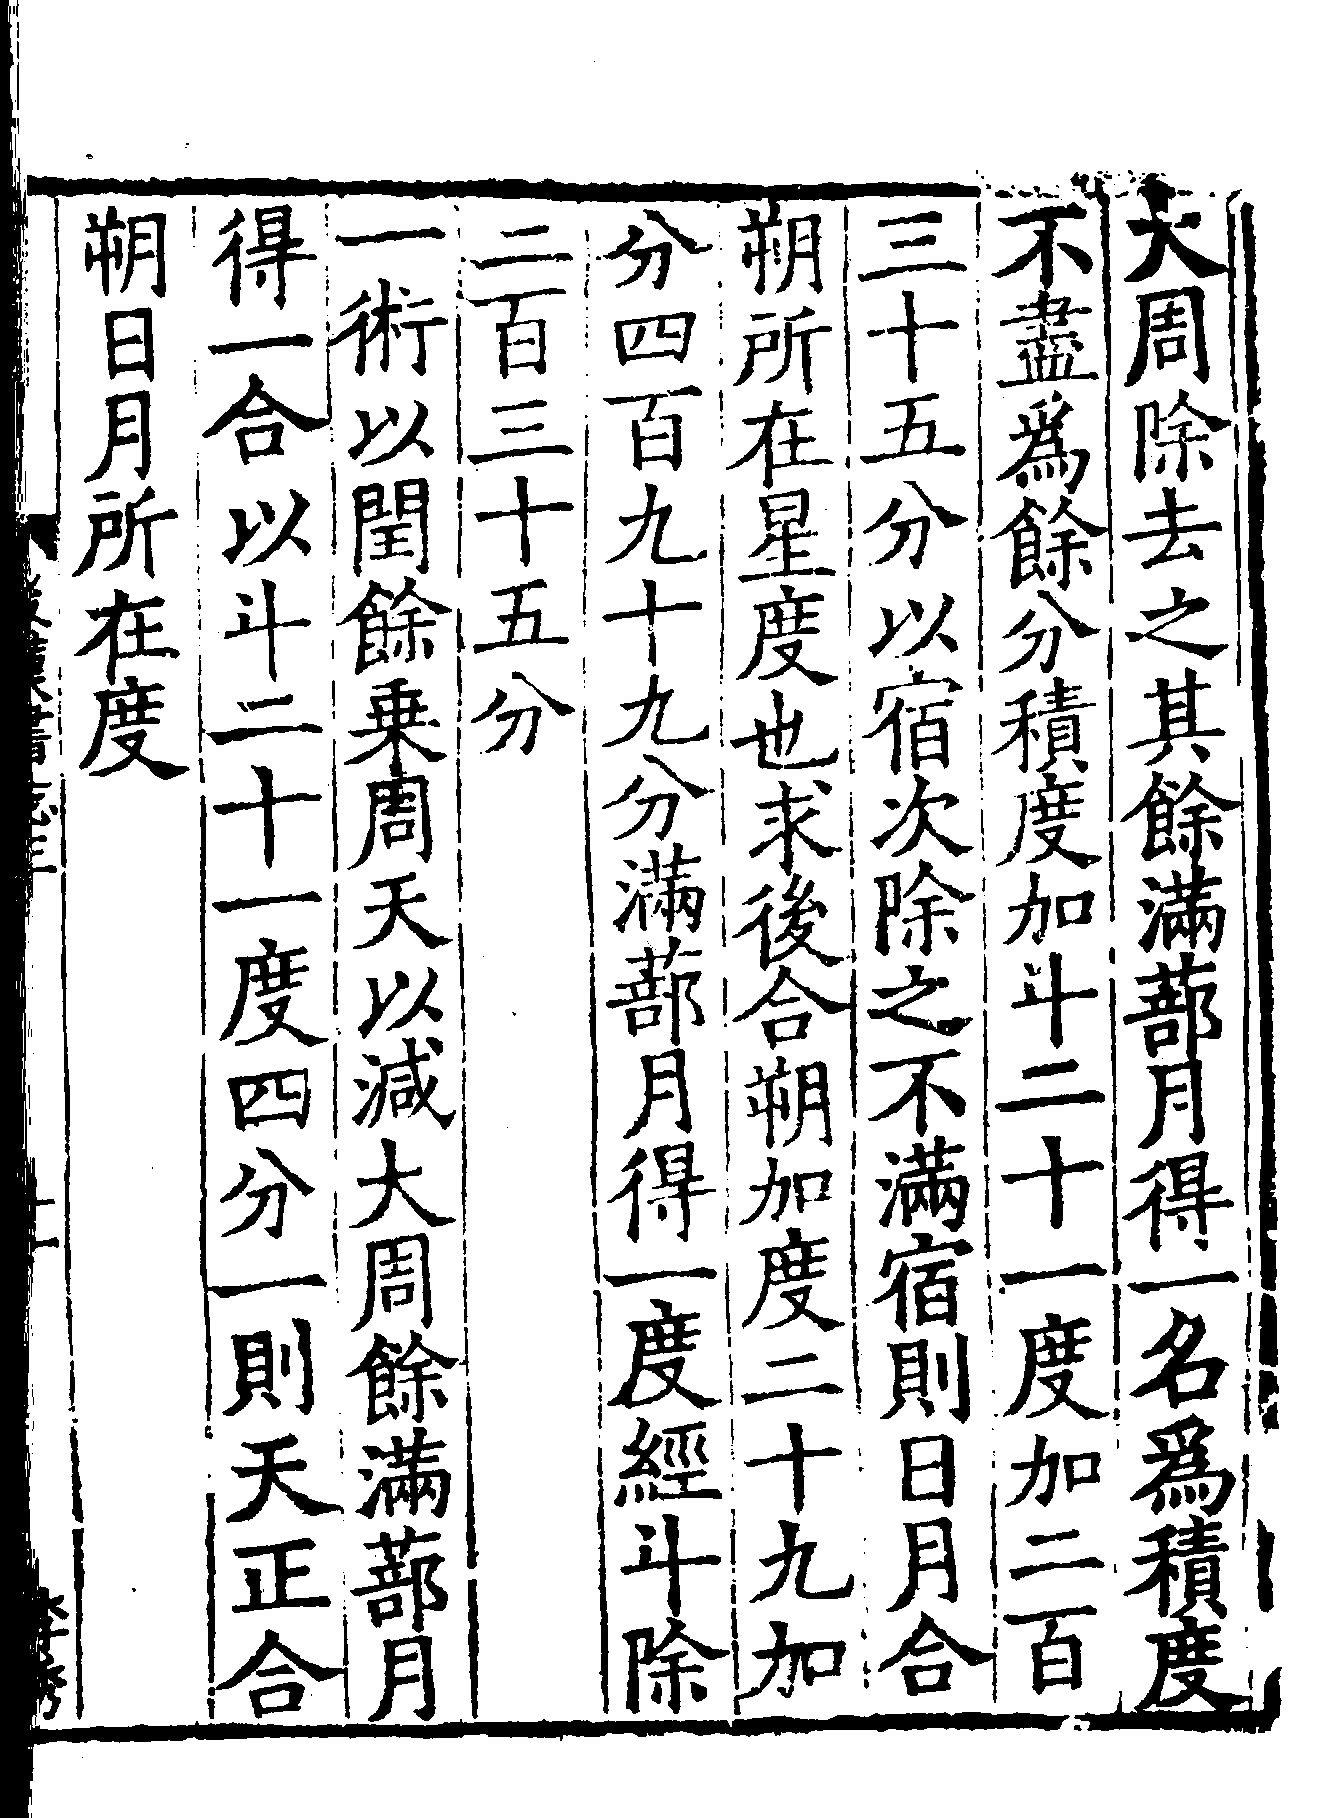 大周除去之其餘滿蔀月得一名爲積度
不盡爲餘分積度加斗二十一度加二百
三十五分以宿次除之不滿宿則日月合
朔所在星度也求後合朔加度二十九加
分四百九十九分滿蔀月得一度經斗除
二百三十五分
一術以閏餘乗周天以減大周餘滿蔀月
得一合以斗二十一度四分一則天正合
朔日月所在度